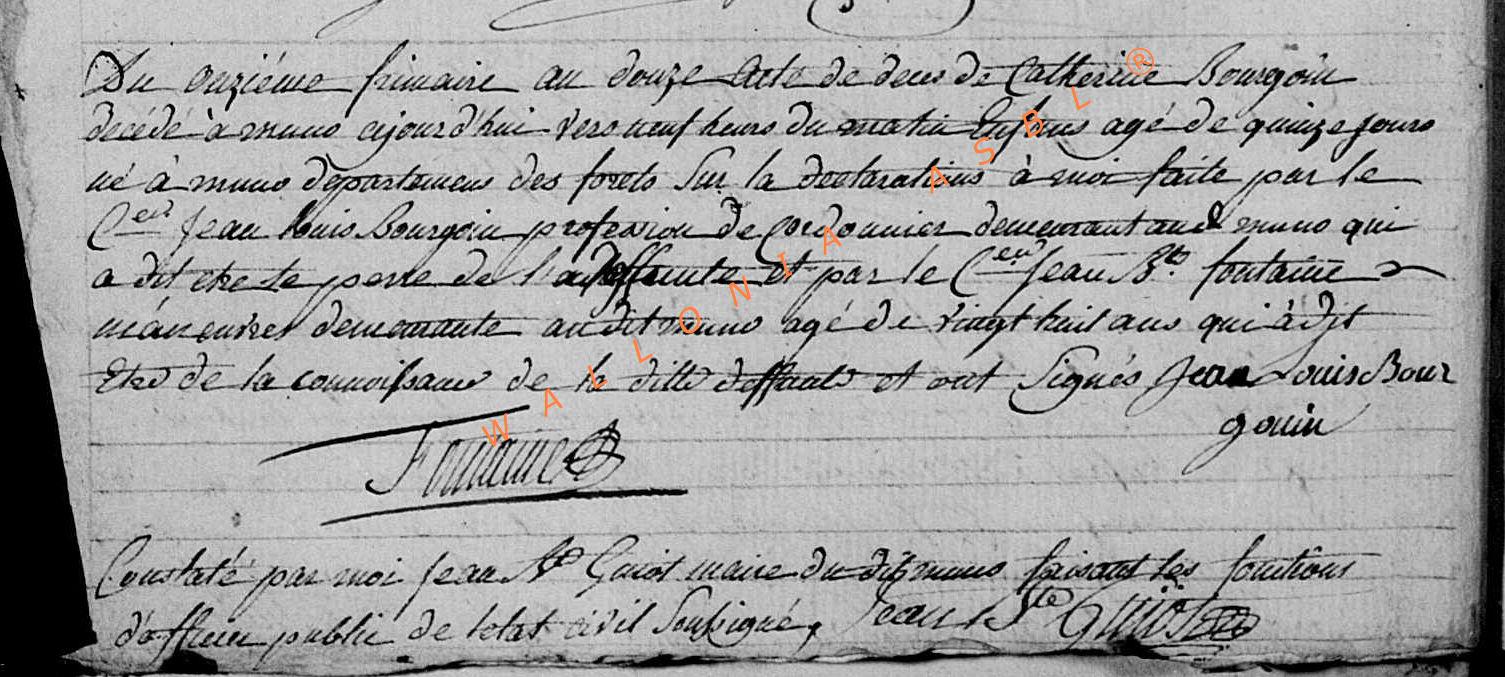 Du onziéme frimaire an douze Acte de deces de Catherine Bourgoin
decédé à muno ajourd'hui vers neuf heurs du matin Enfans agé de quinze jours
né à muno departemens des forets Sur la declarations à moi faite par le
C.en Jean Louis Bourgoin profession de Cordonnier demeurant aud muno qui
a dit etre le perre de l'audeffunte et par le C.en Jean B.te fontaine
manouvrer demeurante au dit muno agé de vingt huit ans qui à dit
Etre de la connoissance de la ditte deffunte et ont Signés Jean Louis Bour
gouin
Fontaine
Constaté par moi Jean B.te Guiot maire du dit muno faisant les fonctions
d'officier public de letat civil Soussigné, Jean B.te Guiot
WALLONIA ASBL ®